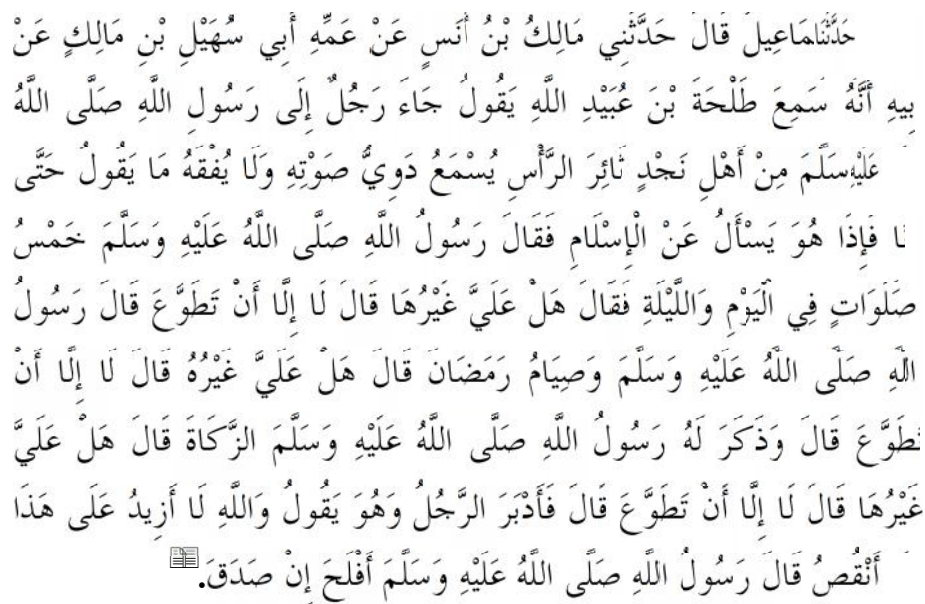 حَدَّثَنَامَاعِيلُ قَالَ حَدَّثَنِي مَالِكُ بْنُ أَنَسٍ عَنْ عَمِّهِ أَبِي سُهَيْلِ بْنِ مَالِكٍ عَنْ
بِيهِ أَنَّهُ سَمِعَ طَلْحَةَ بْنَ عُبَيْدِ اللَّهِ يَقُولُ جَاءَ رَجُلٌ إِلَى رَسُولِ اللَّهِ صَلَّى اللَّهُ
عَلَيْهِسَلَّمَ مِنْ أَهْلِ نَجْدٍ ثَائِرَ الرَّأْسِ يُسْمَعُ دَوِيُّ صَوْتِهِ وَلَا يُفْقَهُ مَا يَقُولُ حَتَّى
نَا فَإِذَا هُوَ يَسْأَلُ عَنْ الْإِسْلَامِ فَقَالَ رَسُولُ اللَّهِ صَلَّى اللَّهُ عَلَيْهِ وَسَلَّمَ خَمْسُ
صَلَوَاتٍ فِي الْيَوْمِ وَاللَّيْلَةِ فَقَالَ هَلْ عَلَيَّ غَيْرُهَا قَالَ لَا إِلَّا أَنْ تَطَوَّعَ قَالَ رَسُولُ
اللَّهِ صَلَّى اللَّهُ عَلَيْهِ وَسَلَّمَ وَصِيَامُ رَمَضَانَ قَالَ هَلْ عَلَيَّ غَيْرُهُ قَالَ لَا إِلَّا أَنْ
تَطَوَّعَ قَالَ وَذَكَرَ لَهُ رَسُولُ اللَّهِ صَلَّى اللَّهُ عَلَيْهِ وَسَلَّمَ الزَّكَاةَ قَالَ هَلْ عَلَيَّ
غَيْرُهَا قَالَ لَا إِلَّا أَنْ تَطَوَّعَ قَالَ فَأَدْبَرَ الرَّجُلُ وَهُوَ يَقُولُ وَاللَّهِ لَا أَزِيدُ عَلَى هَذَا
أَنْقُصُ قَالَ رَسُولُ اللَّهِ صَلَّى اللَّهُ عَلَيْهِ وَسَلَّمَ أَفْلَحَ إِنْ صَدَقَ.